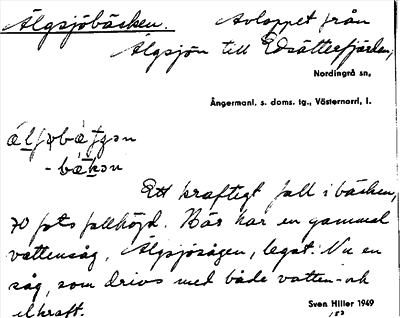 Älgsjöbäcken. Avloppet från
Älgsjön till Edsättersfjärden,
Nordingrå sn,
Ångermanl. s. doms. tg., Västernorrl. l.
- bä̀kən
Ett kraftigt fall i bäcken,
70 fots fallhöjd. Här har en gammal
vattensåg, Älgsjösågen, legat. Nu en
såg, som drivs med både vatten- och
elkraft.
Sven Hiller 1949